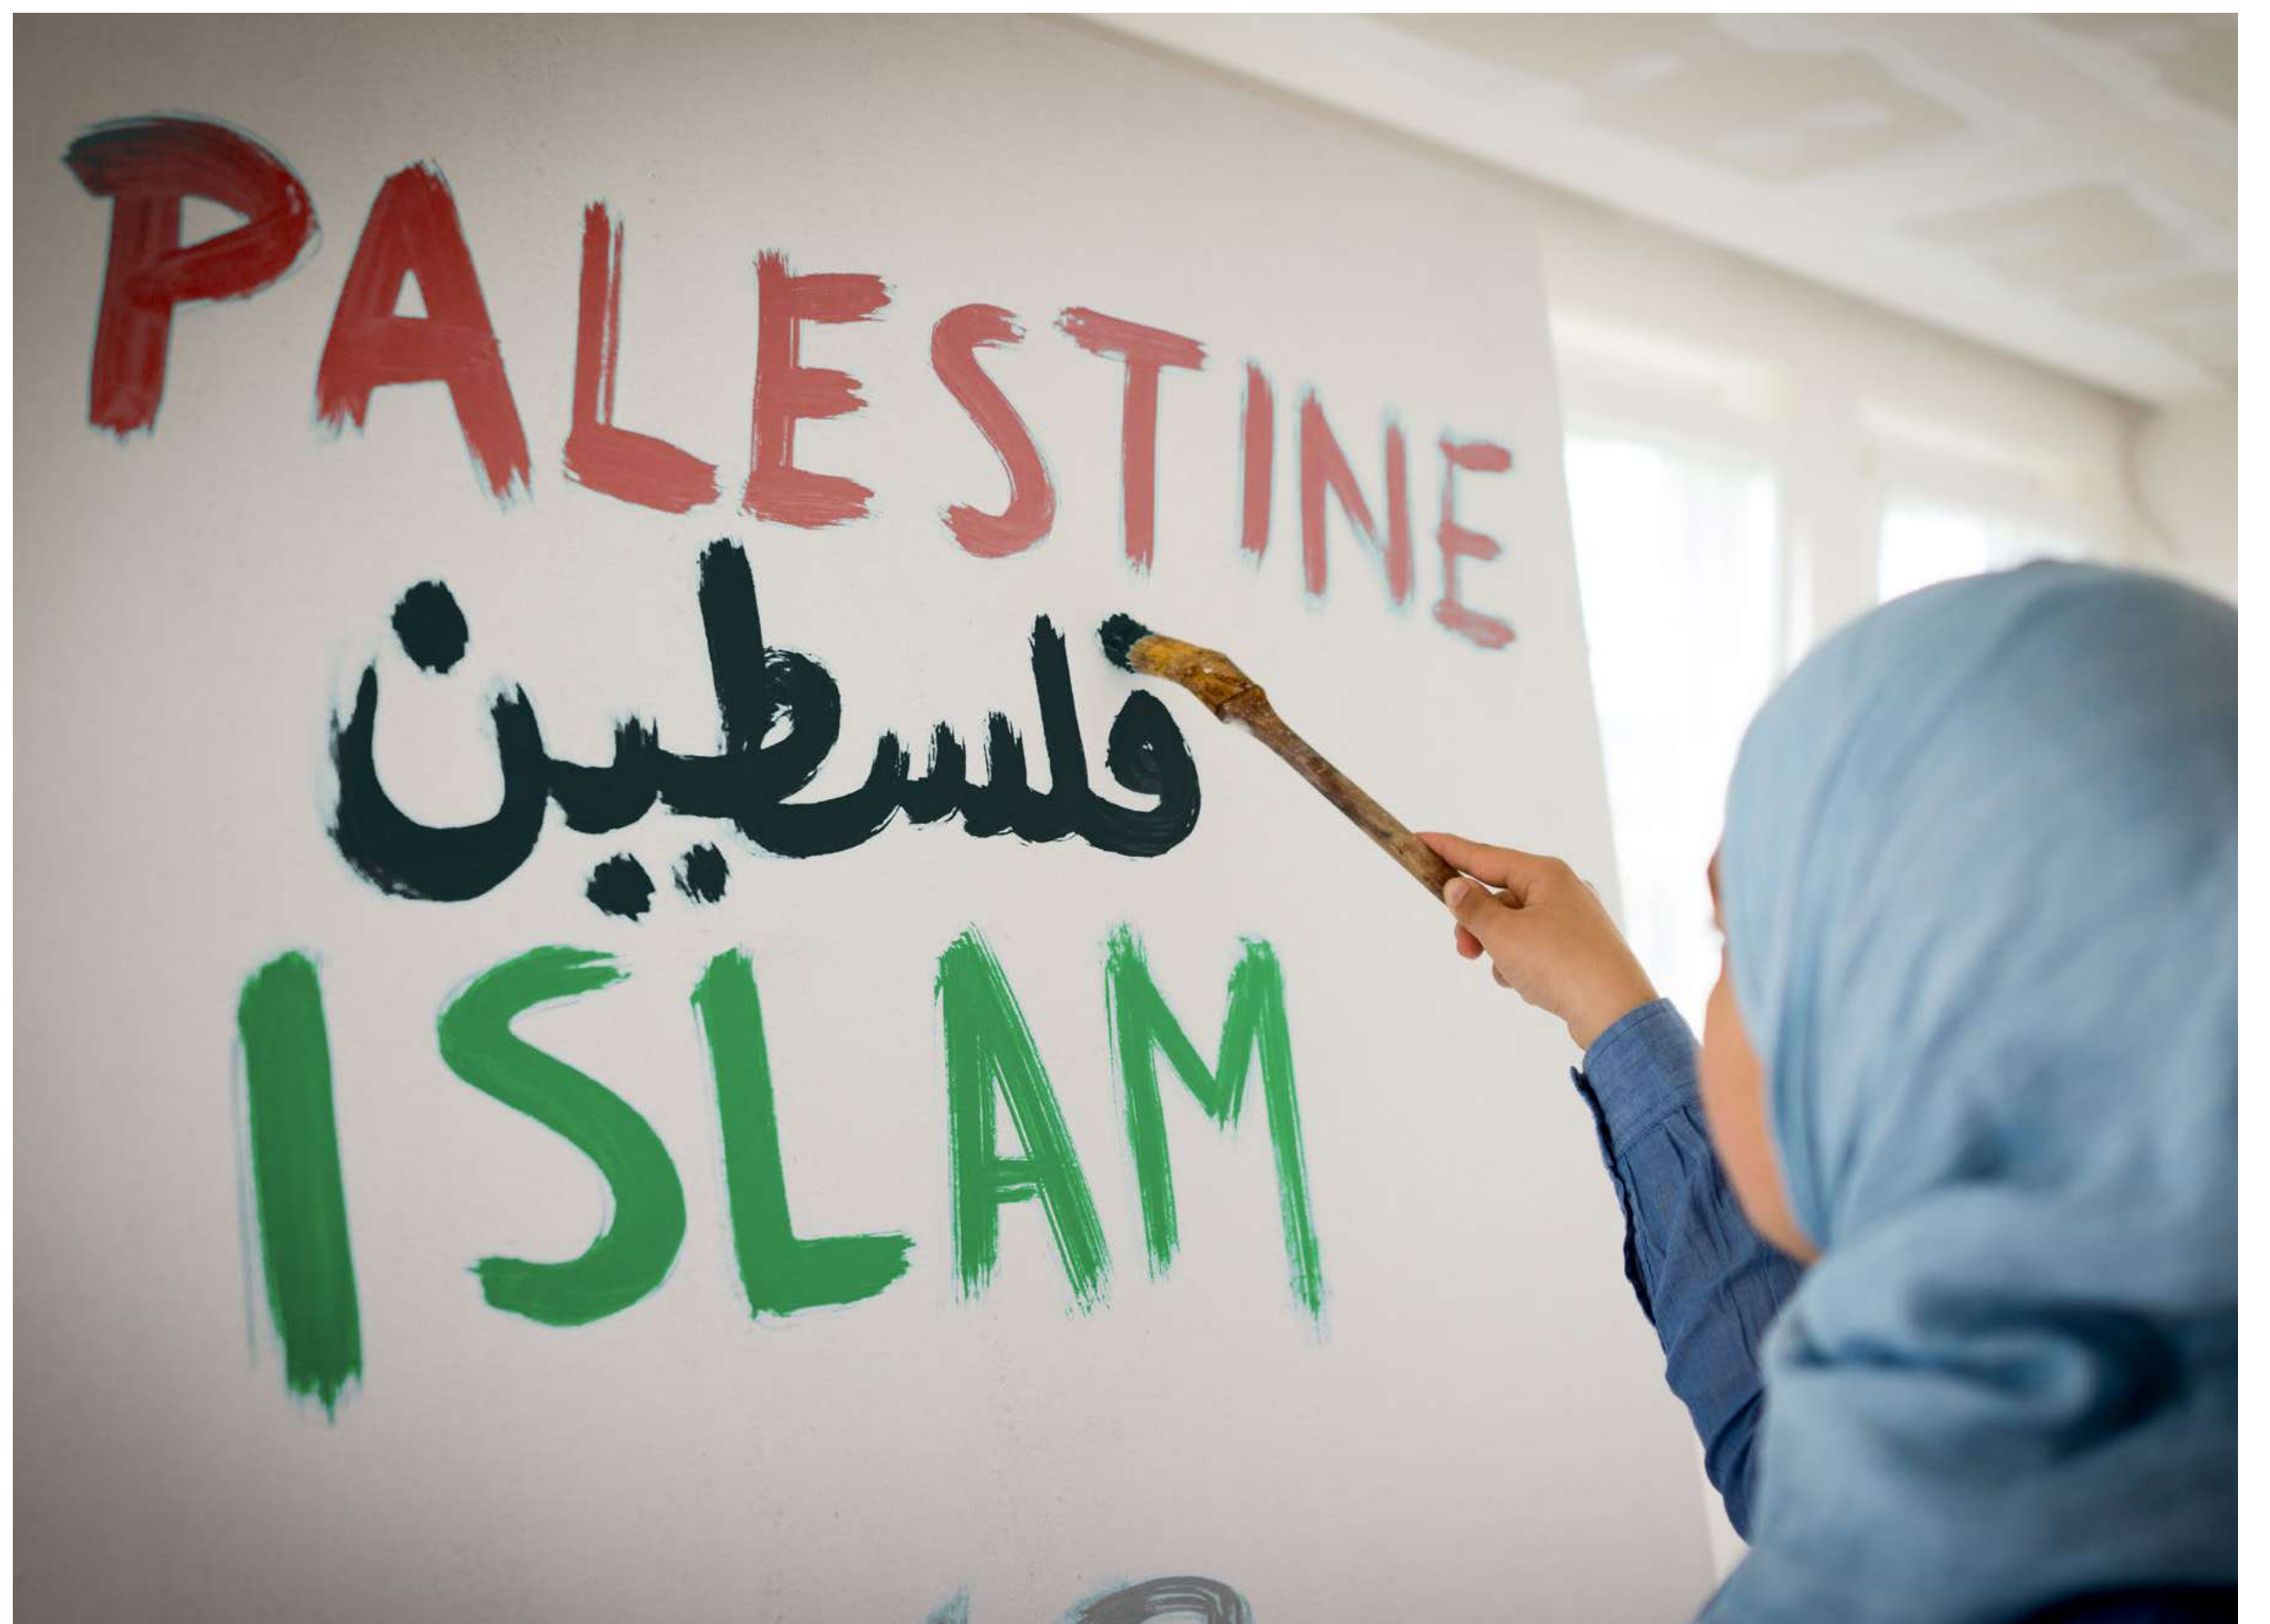 PALESTINE
فلسطين
ISLAM